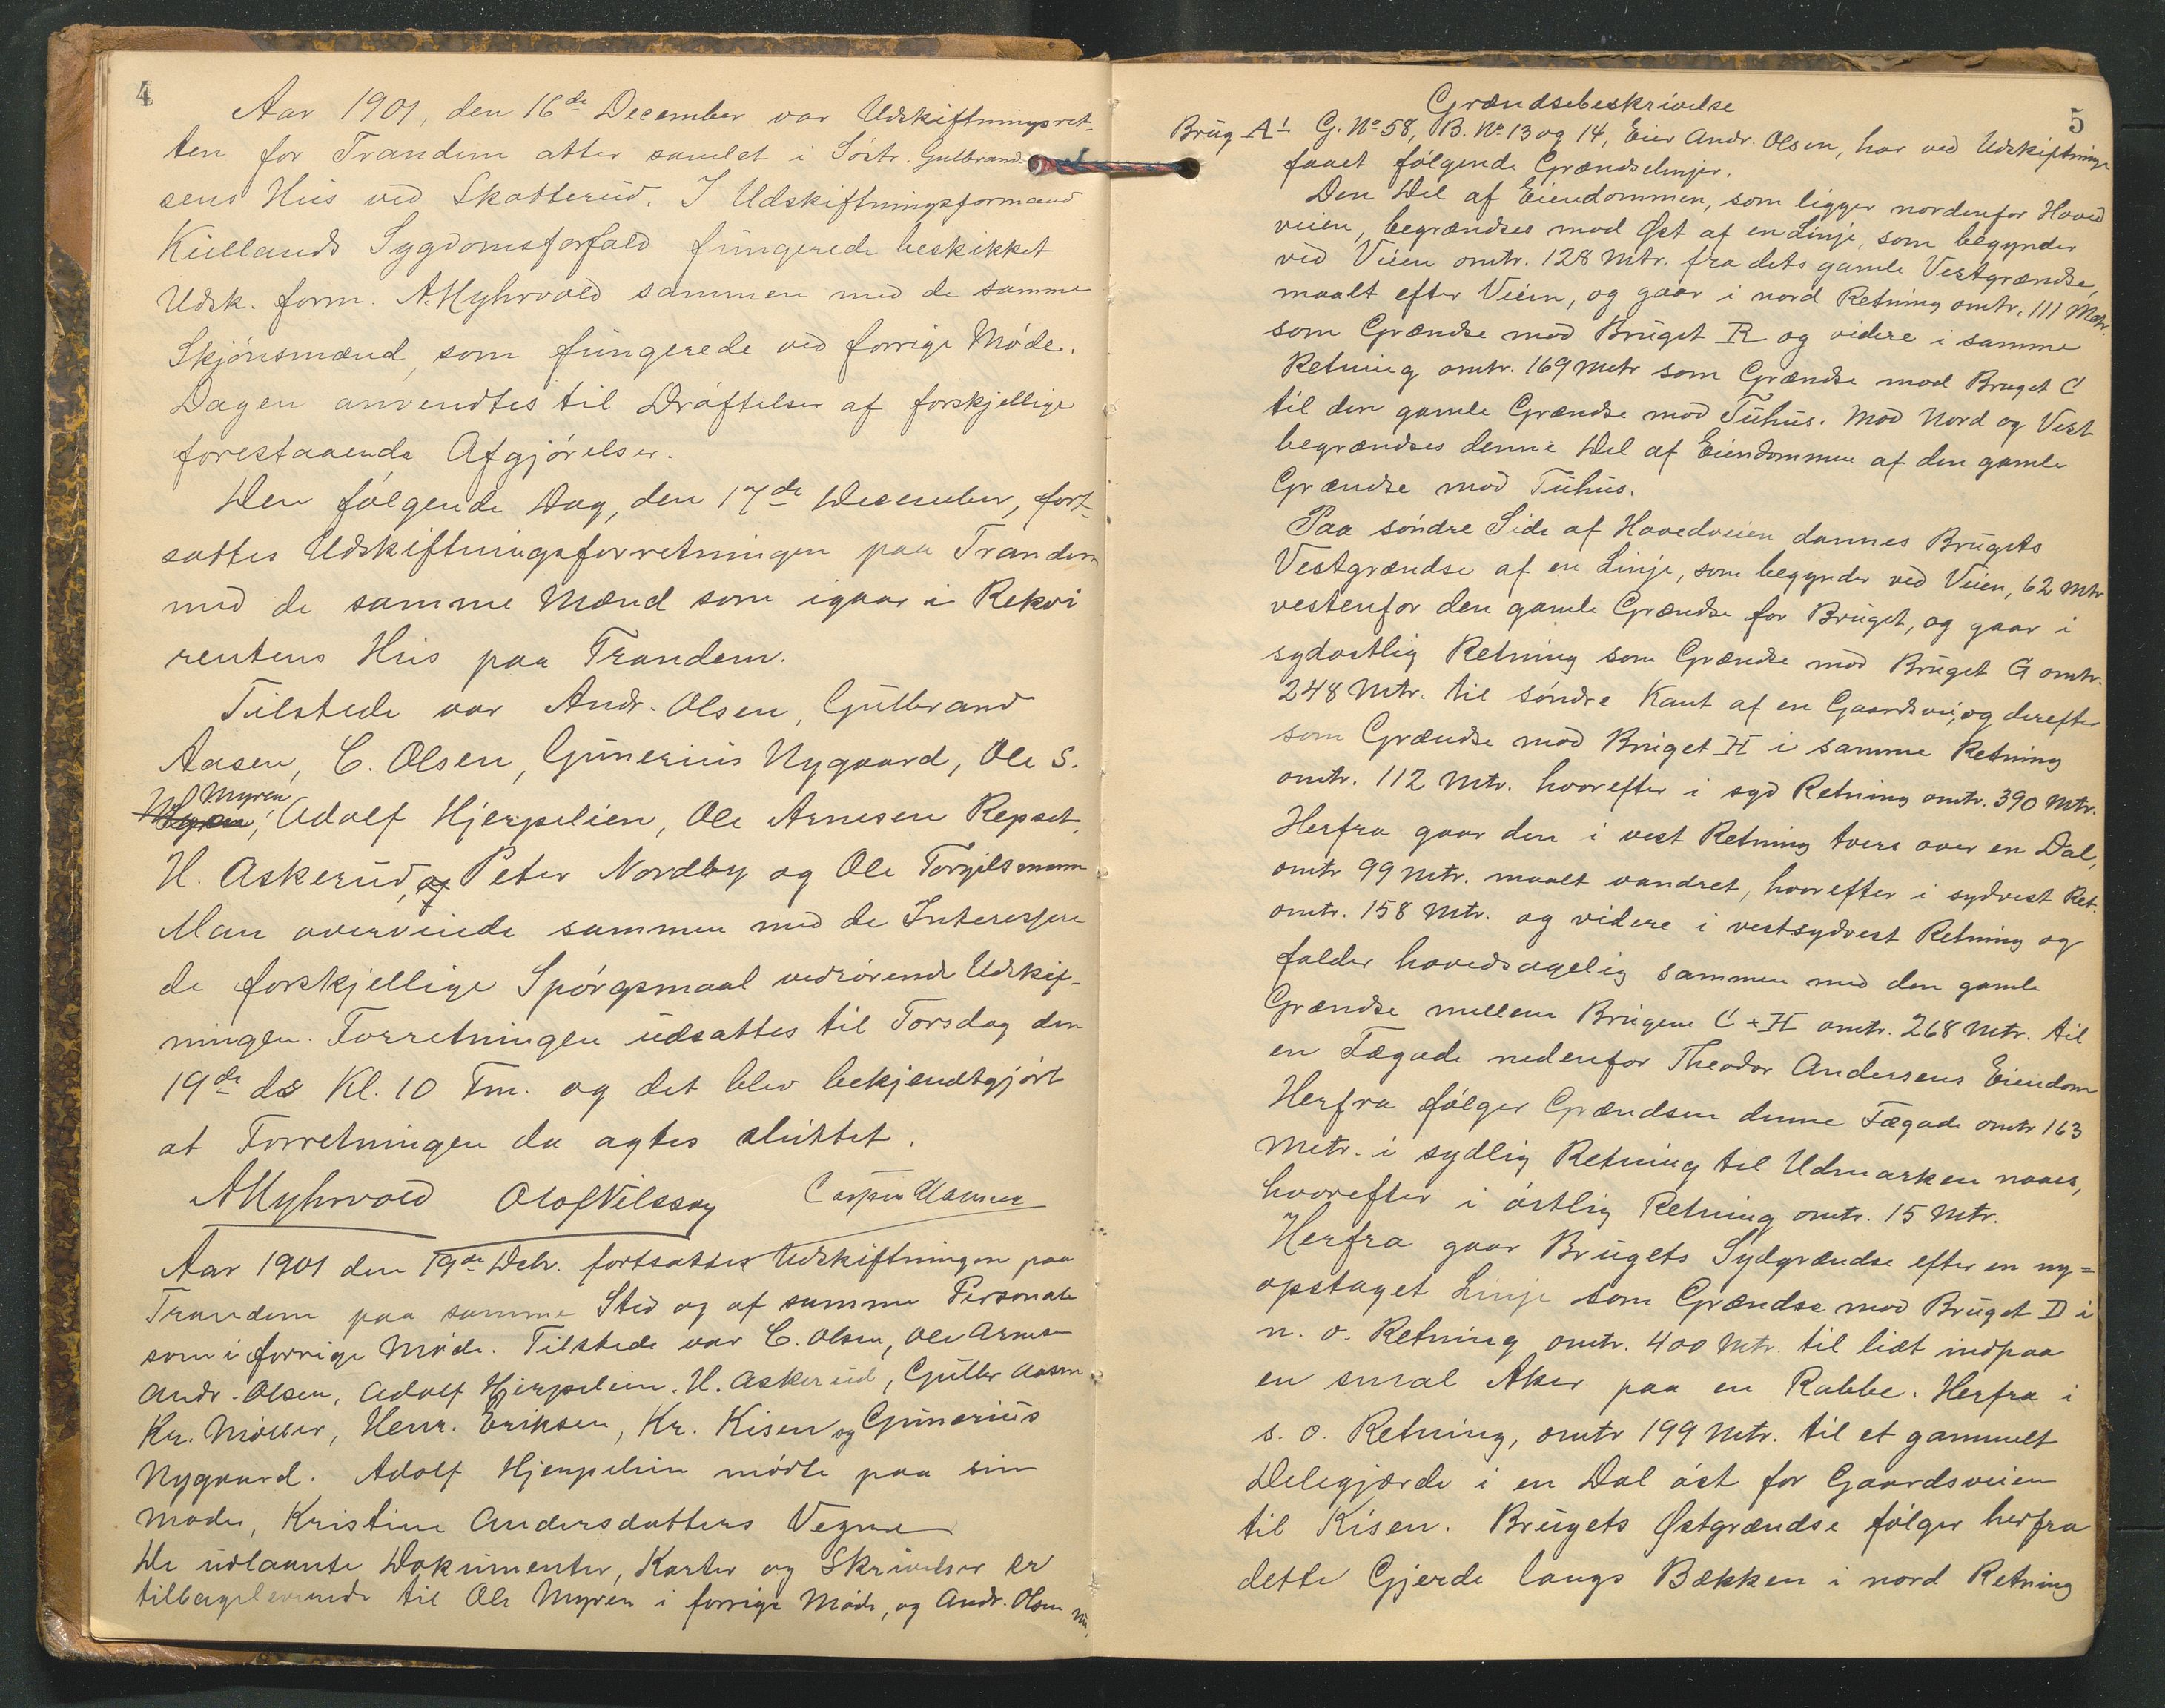 4
Aar 1901, den 16de December var Udskiftningsret-
ten for Trandem atter samlet i Søstr. Gulbrand-
sens Hus ved Skotterud. I Udskiftningsformand
Kiellands Sygdomsforfald fungerede beskikket
Udsk. form. A. Myhrvold sammen med de samme
Skjönsmænd, som fungerede ved forrige Möde.
Dagen anvendtes til Dröftelser af forskjellige
forestaaende Afgjörelser.
Den fölgende Dag, den 17de December, fort-
sattes Udskiftningsforretningen paa Trandem
med de samme Mænd som igaar i Rekvi
rentens Hus paa Trandem.
Tilstede var Andr. Olsen, Gulbrand
Aasen, C. Olsen, Gunerius Nygaard, Ole S.
Myren
Adolf Hjerpelien, Ole Arnesen Repset,
H. Askerud, og Peter Nordby og Ole Torgilsmoen
Man overveiede sammen med de Interesere
de forskjellige Spörgsmaal vedrörende Udskif-
ningen. Forretningen udsattes til Torsdag den
19de ds Kl. 10 Fm. og det blev bekjendtgjört
at Forretningen da agtes sluttet.
AMyhrvold Olof Nilsson Casper
Aar 1901 den 19de Debr. fortsattes Udskiftningen paa
Trandem paa samme Sted og af samme Personale
som i forrige Möde. Tilstede var C. Olsen, Ole Arnesen
Andr. Olsen, Adolf Hjerpelien. H. Askerud, Gulbr Aasen
Kr. Möller, Henr. Eriksen, Kr. Kisen og Gunerius
Nygaard. Adolf Hjerpelien mödte paa sin
Moder, Kristine Andersdatters Vegne
De udlaante Dokumenter, Karter og Skrivelser er
tilbageleverede til Ole Myren i forrige Möde, og Andr. Olsen nu.
5
Grændsebeskrivelse
Brug A1 G. No 58, B. No 13 og 14, Eier Andr. Olsen, har ved Udskiftningen
faaet fölgende Grændselinjer.
Den Del af Eiendommen, som ligger nordenfor Hoved
veien, begrændses mod Øst af en Linje, som begynder
ved Veien omtr. 128 Mtr. fra dets gamle Vestgrændse,
maalt efter Veien, og gaar i nord Retning omtr. 111 Metr.
som Grændse mod Bruget R og videre i samme
Retning omtr. 169 Metr som Grændse mod Bruget C
til den gamle Grændse mod Tuhus. Mod Nord og Vest
begrændses denne Del af Eiendommen af den gamle
Grændse mod Tuhus.
Paa söndre Side af Hovedveien dannes Brugets
Vestgrændse af en Linje, som begynder ved Veien, 62 Mtr
vestenfor den gamle Grændse for Bruget, og gaar i
sydostlig Retning som Grændse mod Bruget G omtr.
248 Mtr. til söndre Kant af en Gaardsvei, og derefter
som Grændse mod Bruget H i samme Retning
omtr. 112 Mtr. hvorefter i syd Retning omtr. 390 Mtr.
Herfra gaar den i vest Retning tvers over en Dal,
omtr 99 Mtr. maalt vandret, hvorefter i sydvest Ret.
omtr. 158 Mtr. og videre i vestsydvest Retning og
falder hovedsagelig sammen med den gamle
Grændse mellem Brugene C + H omtr. 268 Mtr. til
en Fægade nedenfor Theodor Andersens Eiendom
Herfra fölger Grændsen denne Fægade omtr 163
Metr. i sydlig Retning til Udmarken naaes,
hvorefter i östlig Retning omtr. 15 Mtr.
Herfra gaar Brugets Sydgrændse efter en ny=
opstaget Linje som Grændse mod Bruget D i
n. o. Retning omtr. 400 Mtr. til lidt indpaa
en smal Aker paa en Rabbe. Herfra i
s. o. Retning, omtr 199 Mtr. til et gammelt
Delegjærde i en Dal öst for Gaardsveien
til Kisen. Brugets Østgrændse fölger herfra
dette Gjerde langs Bækken i nord Retning